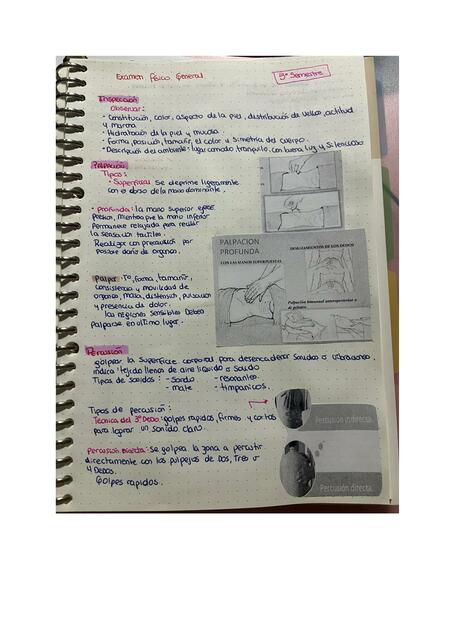 Examen Físico General
5º Semestre
Inspección
Observar:
- Constitución, color, aspecto de la piel, distribución de vellos, actitud
y marcha
- Hidratación de la piel y mucosa
- Forma, posición, tamaño, el color y simetria del cuerpo.
- Descripción del ambiente: lugar comodo tranquilo, con buena luz y silencioso
Palpación
Tipos:
• Superficial: Se deprime ligeramente
con el dorso de la mano dominante.
• Profunda: la mano superior ejerce
presion, mientras que la mano inferior
permanece relajada para recibir
la sensación tactiles.
Realizar con precaución por
posible daño de organos.
PALPACION
PROFUNDA
CON LAS MANOS SUPERPUESTAS
DESLIZAMIENTOS DE LOS DEDOS
Palpación bimanual anteroposterior o
de peloteo
Palpar: Tº, forma, tamaño,
consistencia y movilidad de
organos, masa, distensión, pulsación
y presencia de dolor.
las regiones sensibles deben
palparse en ultimo lugar.
Percusión
golpear la superficie corporal para desencadenar sonidos o vibraciones
indica: tejido llenos de aire liquido o solido
Tipos de sonidos: - Sordo - resonantes.
- mate - timpanicos.
Tipos de percusión:
Tecnica del 3º Dedo: golpes rapidos, firmes y cortos
para lograr un sonido claro.
Percusión indirecta.
Percusión Directa: Se golpea la zona a percutir
directamente con los pulpejos de Dos, Tres o
4 Dedos.
Golpes rapidos.
Percusión directa.